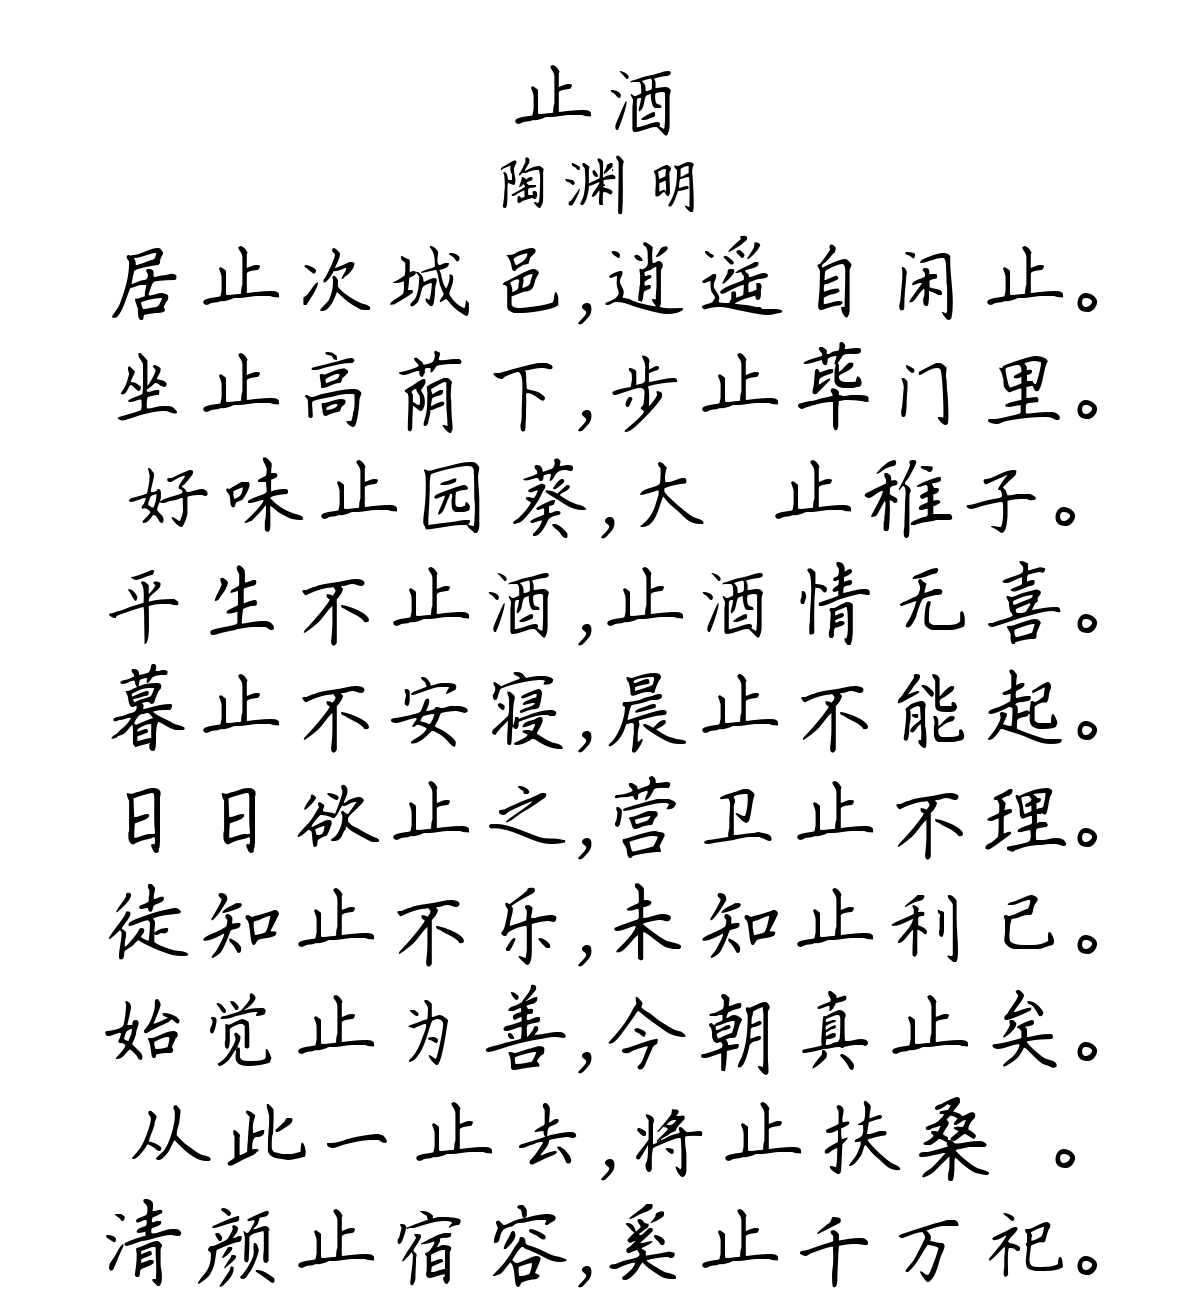 止酒
陶渊明
居止次城邑,逍遥自闲止。
坐止高荫下,步止荜门里。
好味止园葵,大 止稚子。
平生不止酒,止酒情无喜。
暮止不安寝,晨止不能起。
日日欲止之,营卫止不理。
徒知止不乐,未知止利己。
始觉止为善,今朝真止矣。
从此一止去,将止扶桑 。
清颜止宿容,奚止千万祀。